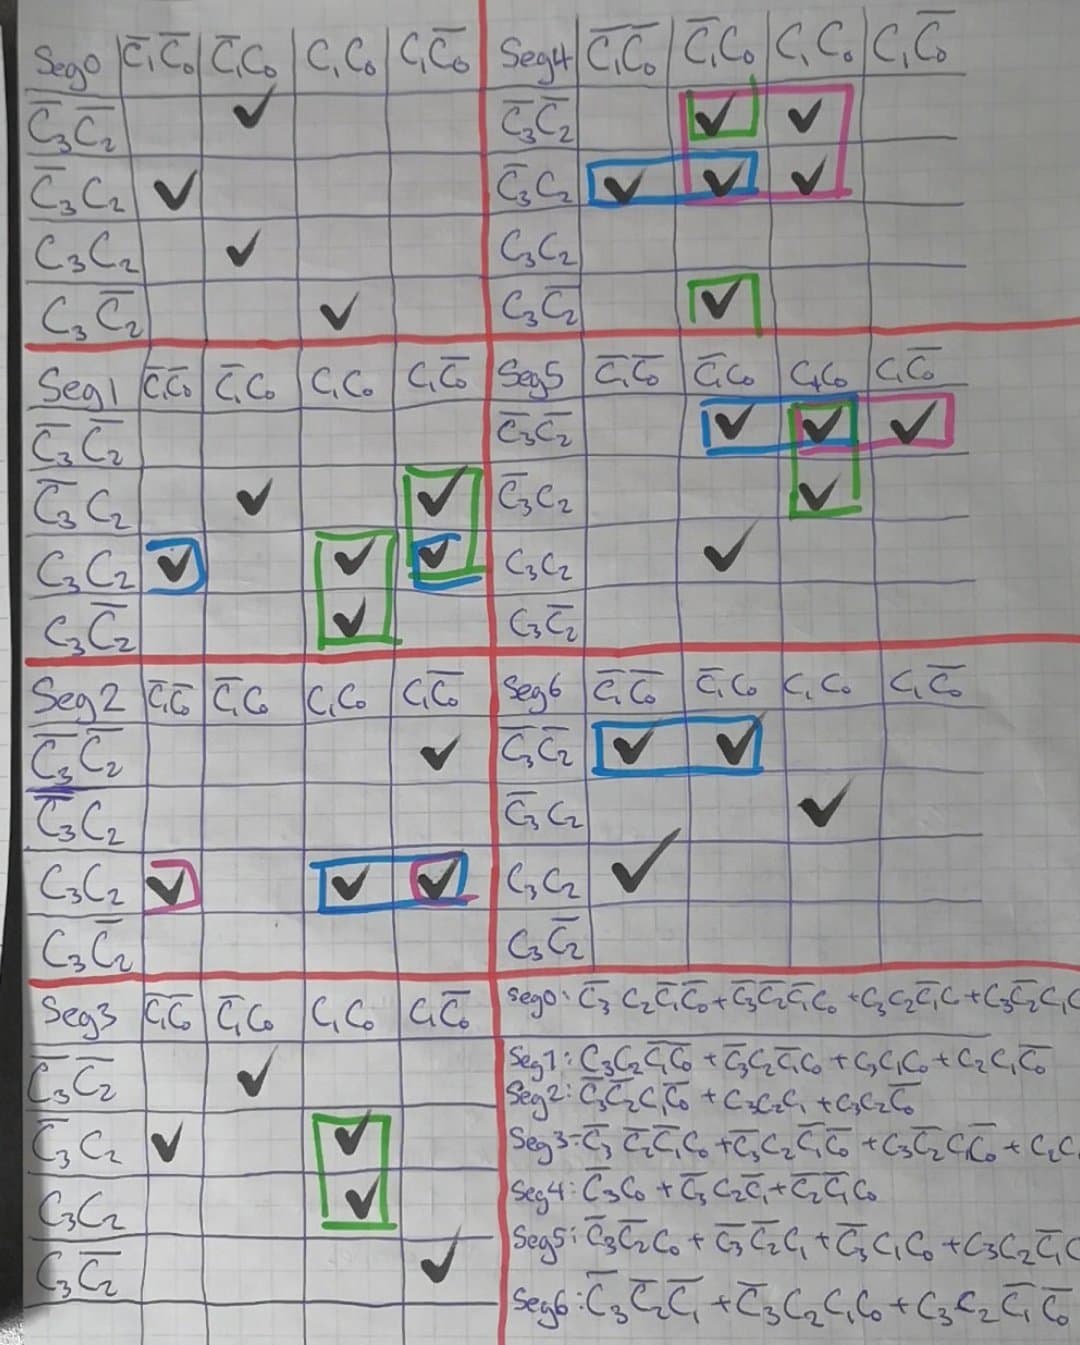 Seg0 C̅₁C̅₀ C̅₁C₀ C₁C₀ C₁C̅₀
C̅₃C̅₂ ✓
C̅₃C₂ ✓
C₃C₂ ✓
C₃C̅₂ ✓
Seg1 C̅₁C̅₀ C̅₁C₀ C₁C₀ C₁C̅₀
C̅₃C̅₂
C̅₃C₂ ✓ ✓
C₃C₂ ✓ ✓ ✓
C₃C̅₂ ✓
Seg2 C̅₁C̅₀ C̅₁C₀ C₁C₀ C₁C̅₀
C̅₃C̅₂ ✓
C̅₃C₂
C₃C₂ ✓ ✓ ✓
C₃C̅₂
Seg3 C̅₁C̅₀ C̅₁C₀ C₁C₀ C₁C̅₀
C̅₃C̅₂ ✓
C̅₃C₂ ✓ ✓
C₃C₂ ✓
C₃C̅₂ ✓
Seg4 C̅₁C̅₀ C̅₁C₀ C₁C₀ C₁C̅₀
C̅₃C̅₂ ✓ ✓
C̅₃C₂ ✓ ✓ ✓
C₃C₂
C₃C̅₂ ✓
Seg5 C̅₁C̅₀ C̅₁C₀ C₁C₀ C₁C̅₀
C̅₃C̅₂ ✓ ✓ ✓
C̅₃C₂ ✓
C₃C₂ ✓
C₃C̅₂
Seg6 C̅₁C̅₀ C̅₁C₀ C₁C₀ C₁C̅₀
C̅₃C̅₂ ✓ ✓
C̅₃C₂ ✓
C₃C₂ ✓
C₃C̅₂
Seg0: C̅₃C₂C̅₁C̅₀ + C̅₃C̅₂C̅₁C₀ + C₃C₂C̅₁C₀ + C₃C̅₂C₁C
Seg1: C₃C₂C̅₁C̅₀ + C̅₃C₂C̅₁C₀ + C₃C₁C₀ + C₂C₁C̅₀
Seg2: C̅₃C̅₂C₁C̅₀ + C₃C₂C₁ + C₃C₂C̅₀
Seg3: C̅₃C̅₂C̅₁C₀ + C̅₃C₂C̅₁C̅₀ + C₃C̅₂C₁C̅₀ + C₂C
Seg4: C̅₃C₀ + C̅₃C₂C̅₁ + C̅₂C̅₁C₀
Seg5: C̅₃C̅₂C₀ + C̅₃C̅₂C₁ + C̅₃C₁C₀ + C₃C₂C̅₁C
Seg6: C̅₃C̅₂C̅₁ + C̅₃C₂C₁C₀ + C₃C₂C̅₁C̅₀